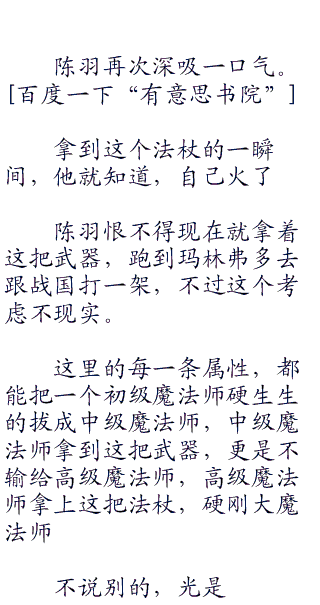 陈羽再次深吸一口气。
[百度一下“有意思书院”]
拿到这个法杖的一瞬
间，他就知道，自己火了
陈羽恨不得现在就拿着
这把武器，跑到玛林弗多去
跟战国打一架，不过这个考
虑不现实。
这里的每一条属性，都
能把一个初级魔法师硬生生
的拔成中级魔法师，中级魔
法师拿到这把武器，更是不
输给高级魔法师，高级魔法
师拿上这把法杖，硬刚大魔
法师
不说别的，光是